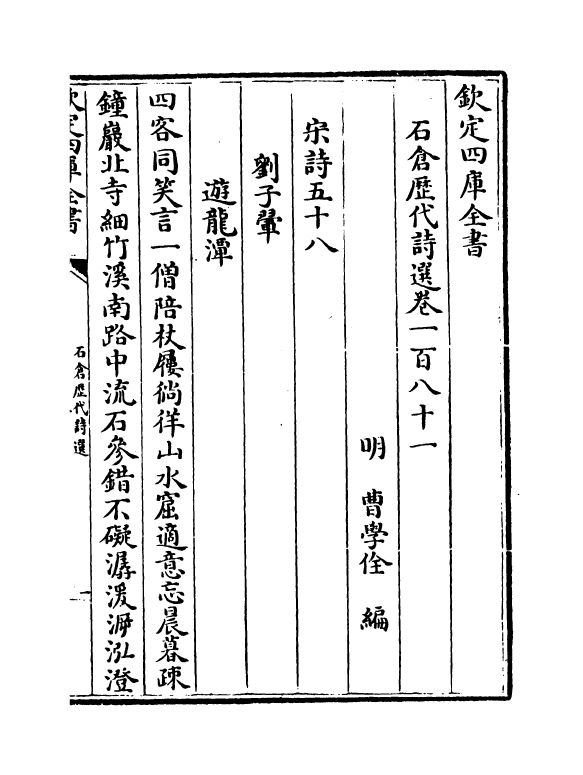 欽定四庫全書
石倉歷代詩選卷一百八十一
明　曹學佺　編
宋詩五十八
劉子翬
遊龍潭
四客同笑言一僧陪杖屨徜徉山水窟適意忘晨暮疎
鐘巖北寺細竹溪南路中流石參錯不礙潺湲泝泓澄
欽定四庫全書
石倉歷代詩選
一